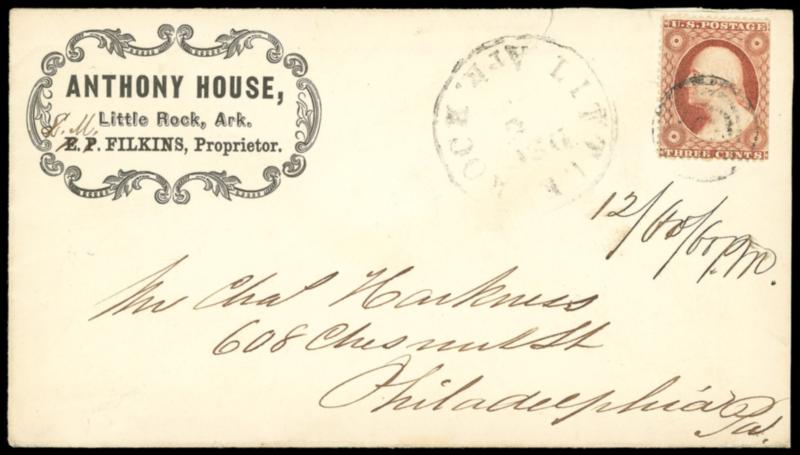 ANTHONY HOUSE,
Little Rock, Ark.
S. M.
E. P. FILKINS, Proprietor.
LITTLE ROCK ARK.
U.S. POSTAGE
THREE CENTS
Mr Chas Harkness
608 Chesnut St
Philadelphia
Pa.